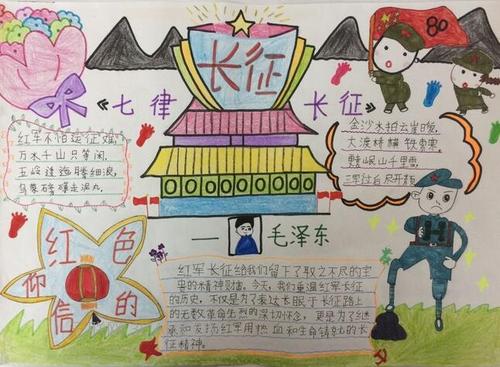 长征
80
《七律 长征》
红军不怕远征难
万水千山只等闲,
五岭逶迤腾细浪,
乌蒙磅礴走泥丸。
金沙水拍云崖暖,
大渡桥横铁索寒,
岷山千里雪,
三军过后尽开颜
— 毛泽东
红色
仰信的
红军长征给我们留下了取之不尽的宝
贵的精神。今天,我们重温红军长征
的历史,不仅是为了表达长眠于长征路上
的无数革命先烈的深切怀念,更是为了继
承和发扬红军用热血和生命铸就的长
征精神。